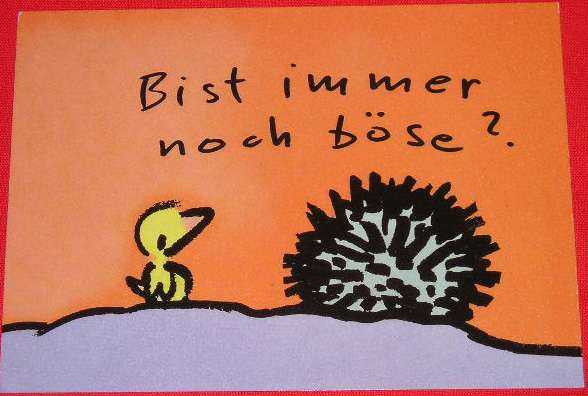 Bist immer
noch böse?